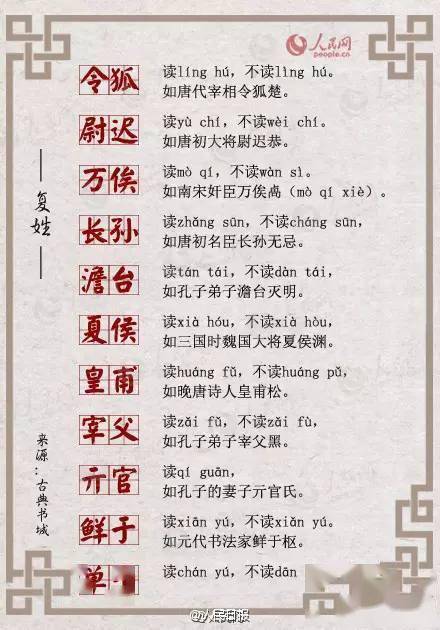 人民网
people.cn
复姓
令狐
读líng hú，不读lìng hú。
如唐代宰相令狐楚。
尉迟
读yù chí，不读wèi chí。
如唐初大将尉迟恭。
万俟
读mò qí，不读wàn sì。
如南宋奸臣万俟卨（mò qí xiè）。
长孙
读zhǎng sūn，不读cháng sūn，
如唐初名臣长孙无忌。
澹台
读tán tái，不读dàn tái，
如孔子弟子澹台灭明。
夏侯
读xià hóu，不读xià hòu，
如三国时魏国大将夏侯渊。
皇甫
读huáng fǔ，不读huáng pǔ，
如晚唐诗人皇甫松。
宰父
读zǎi fǔ，不读zǎi fù，
如孔子弟子宰父黑。
亓官
读qí guān，
如孔子的妻子亓官氏。
鲜于
读xiān yú，不读xiǎn yú。
如元代书法家鲜于枢。
单
读chán yú，不读dān
来源：古典书城
@人民日报